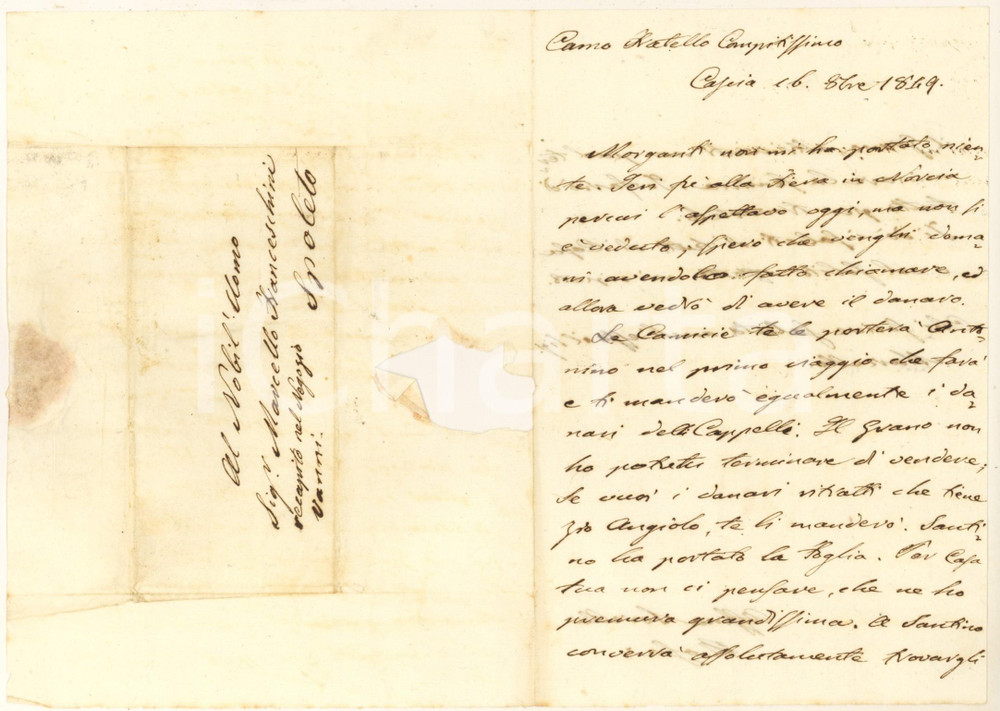 Al Nobil' Uomo
Sigr. Marcello Franceschini
recapito nel Negozio
Vanni. Spoleto
Carmo Fratello Compitissimo
Cascia 16. 8bre 1849.
Morganti non mi ha portato nien=
te. Jeri fù alla Fiera in Norcia
percui l'aspettavo oggi, ma non si
è veduto, spero che venghi doma=
ni avendolo fatto chiamare, ed
allora vedrò di avere il danaro.
Le Camicie te le porterà Anto=
nino nel primo viaggio che farà
e ti manderò egualmente i da=
nari delli Cappelli. Il Grano non
ho potuto terminare di vendere;
Se vuoi i danari ritratti che tiene
Zio Angiolo, te li manderò. Santi=
no ha portato la Foglia. Per Casa
tua non ci pensare, che ne ho
premura grandissima. A Santino
converrà assolutamente trovargli
ichara